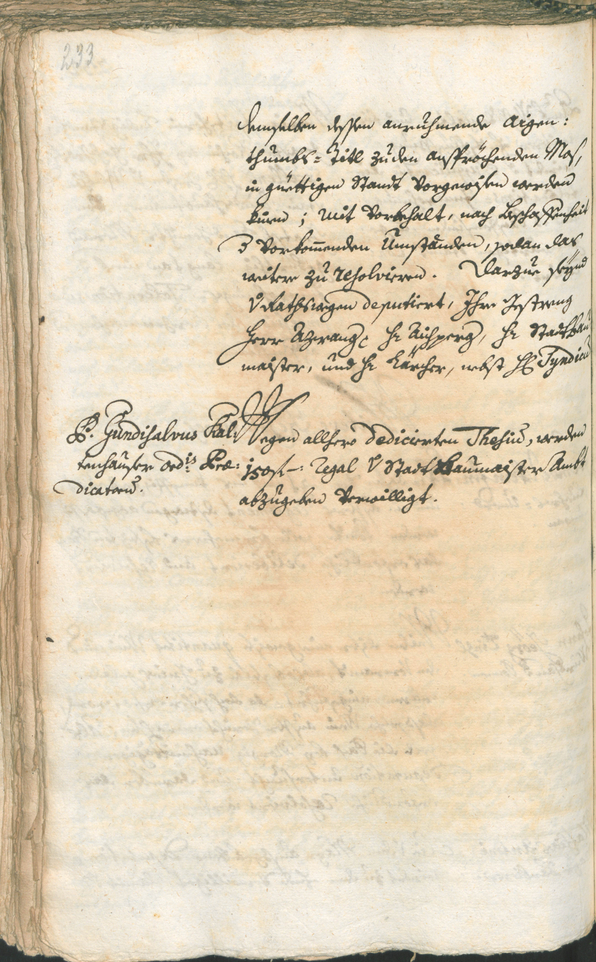 233
demselben dessen anruhmende Aigen:
thumbs=Titl zu den ansprechenden Mos,
in güettigen Standt vorgewisen werden
kunen; mit Vorbehalt, nach Beschaffenheit
vorkommenden Umständen, sodan das
weitere zu resolvieren. Darzue seynd
V Rathswegen deputiert, Ihro Gestreng
Herr hr Aichperg, hr Stadtbau
maister, und hr Kärcher, nebst Syndico
P. Gundisalvus Kal:
tenhauser Ord: Præ:
dicatorũ.
Wegen allhero dedicierten Thesin, werden
150 f: Regal V Stadt Baumaister Ambt
abzugeben verwilligt.